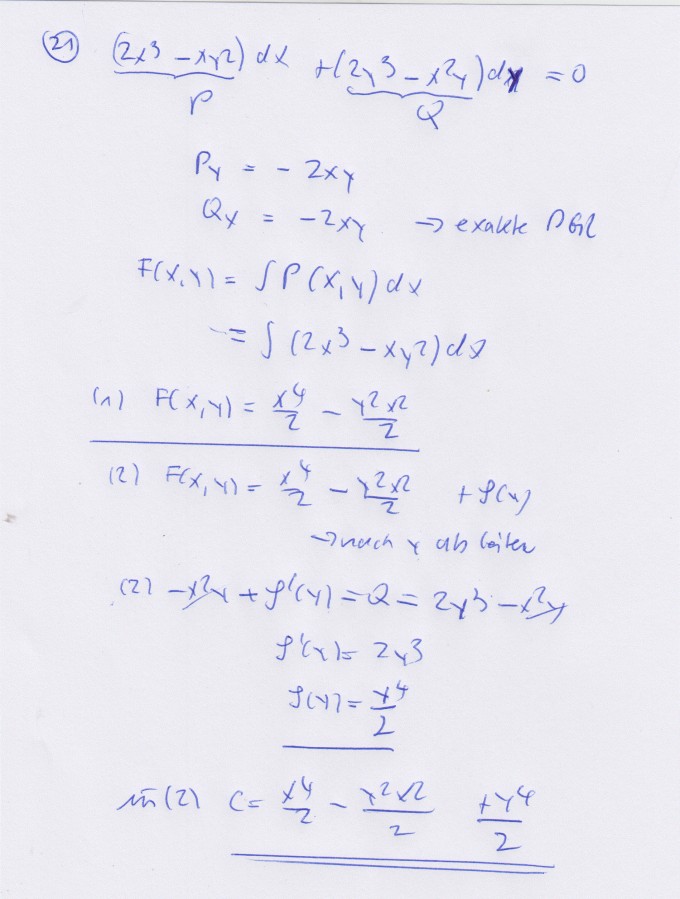 (21) (2x³ − xy²) dx + (2y³ − x²y) dy = 0
P Q
Py = − 2xy
Qx = − 2xy → exakte DGL
F(x,y) = ∫ P(x,y) dx
= ∫ (2x³ − xy²) dx
(1) F(x,y) = x⁴/2 − y²x²/2
(2) F(x,y) = x⁴/2 − y²x²/2 + φ(y)
→ nach y ableiten
(2) −x²y + φ'(y) = Q = 2y³ − x²y
φ'(y) = 2y³
φ(y) = y⁴/2
in (2) C = x⁴/2 − y²x²/2 + y⁴/2